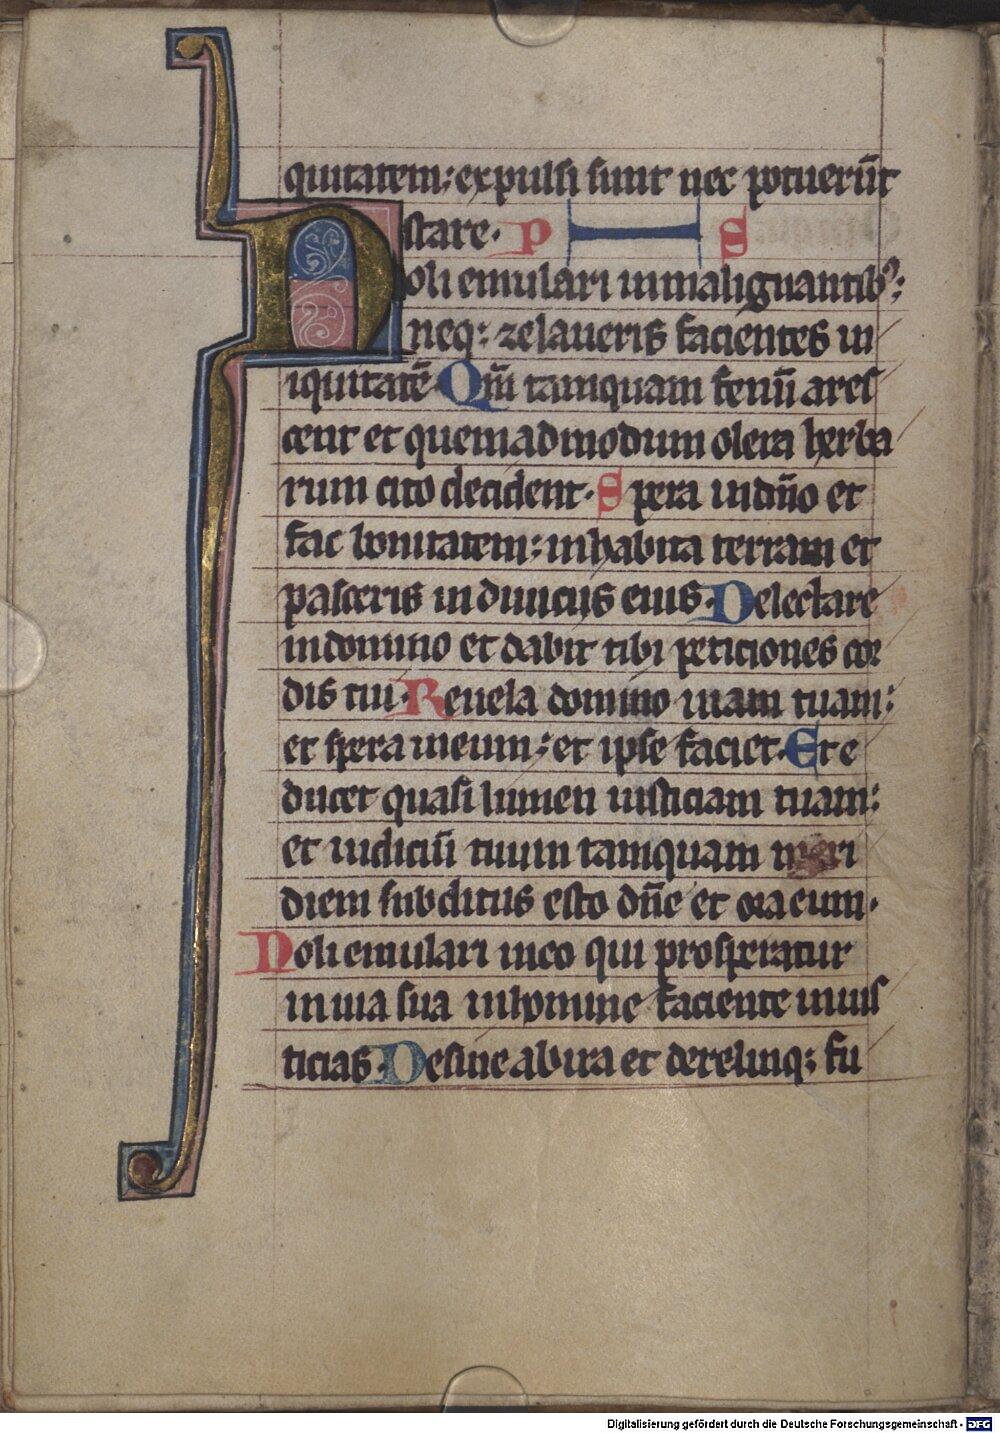 quitatem: expulsi sunt nec potuerūt
stare. P S
Noli emulari inmalignantibꝰ:
neq: zelaueris facientes in
iquitatē. Qm̄ tamquam fenū ares
cent et quemadmodum olera herba
rum cito decident. Spera indn̄o et
fac bonitatem: inhabita terram et
pasceris indiuiciis eius. Delectare
indomino et dabit tibi peticiones cor
dis tui. Reuela domino uiam tuam:
et spera ineum: et ipse faciet. Et e
ducet quasi lumen iusticiam tuam:
et iudiciū tuum tamquam meri
diem subditus esto dn̄e et ora eum.
Noli emulari ineo qui prosperatur
inuia sua inhomine faciente inius
ticias. Desine abira et derelinq; fu
Digitalisierung gefördert durch die Deutsche Forschungsgemeinschaft - DFG